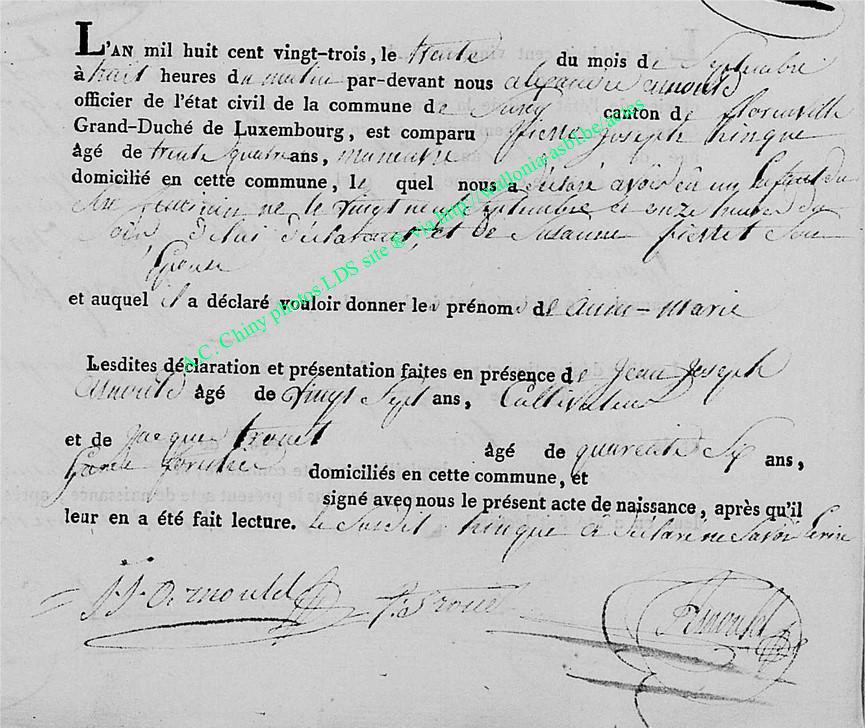 L'AN mil huit cent vingt-trois, le trente du mois de Septembre
à huit heures du matin par-devant nous alexandre arnould
officier de l'état civil de la commune de canton de florenville
Grand-Duché de Luxembourg, est comparu pierre joseph hinque
âgé de trente quatre ans, manœuvre
domicilié en cette commune, le quel nous a déclaré avoir eû un Enfant du
Sexe feminin né le vingt neuf Septembre a onze heures du
Soir de lui déclarant, et de Susanne pierret Son
Epouse
et auquel il a déclaré vouloir donner les prénoms de Anne-Marie
Lesdites déclaration et présentation faites en présence de Jean Joseph
Arnould âgé de vingt Sept ans, Cultivateur
et de jacque trouet âgé de quarente Six ans,
Garde forestier domiciliés en cette commune, et
signé avec nous le présent acte de naissance, après qu'il
leur en a été fait lecture. le Susdit hinque a déclaré ne Savoir Ecrire
JJ Arnould J. Trouet Arnould
A.C. Chiny photos LDS site ® via http://Wallonia-asbl.be/actes